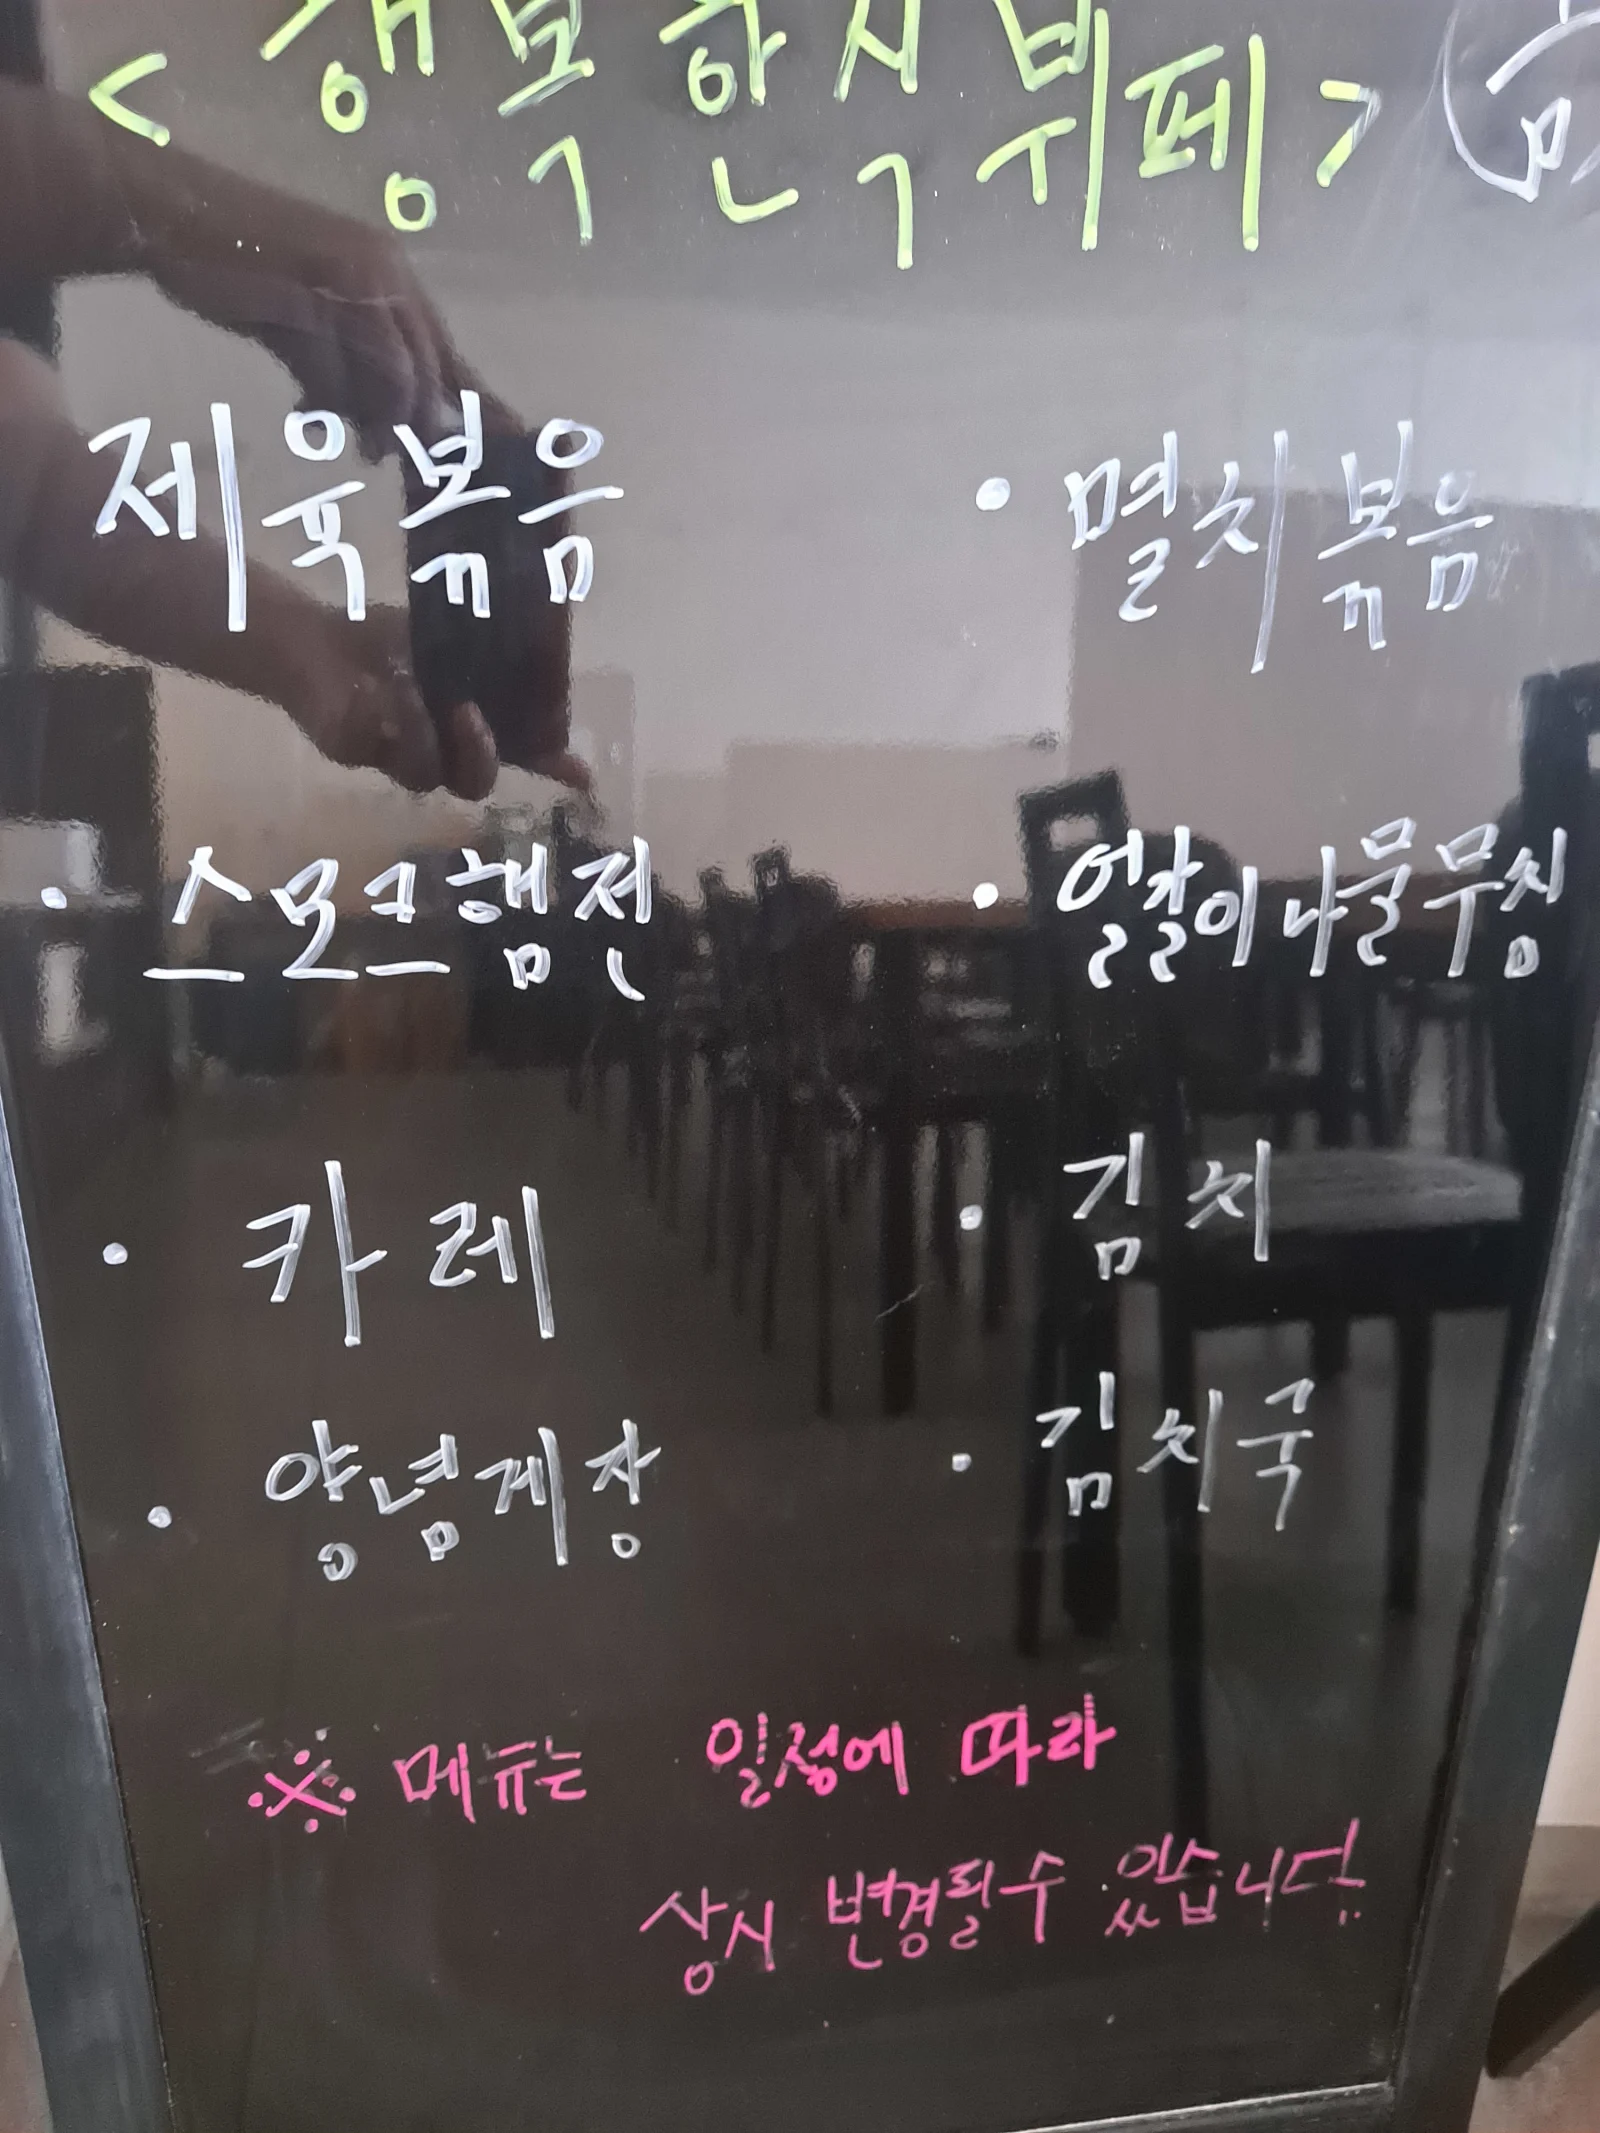 <행복한식뷔페>
제육볶음
• 멸치볶음
• 스모크햄전
• 얼갈이나물무침
• 카레
• 김치
• 양념게장
• 김치국
※ 메뉴는 일정에 따라
상시 변경될수 있습니다.